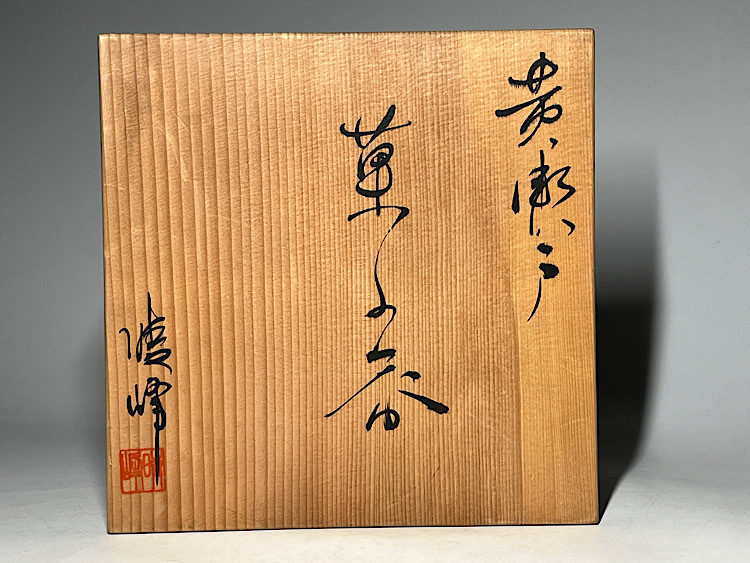 黄瀬戸
菓子器
陵峰